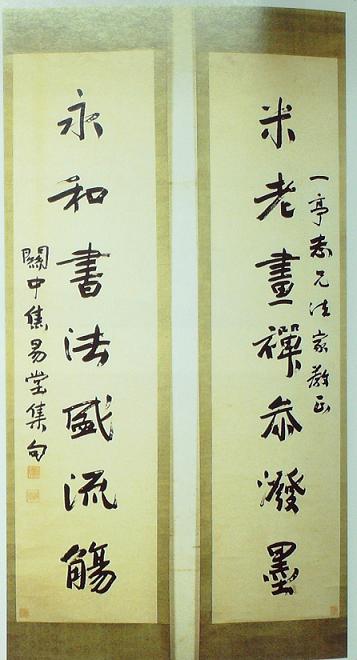 一亭兄法家教正
米老畫禪參潑墨
永和書法盛流觴
關中焦易堂集句